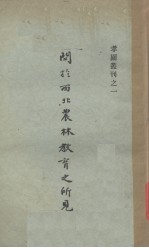 孝園叢刊之一
關於西北農林教育之所見